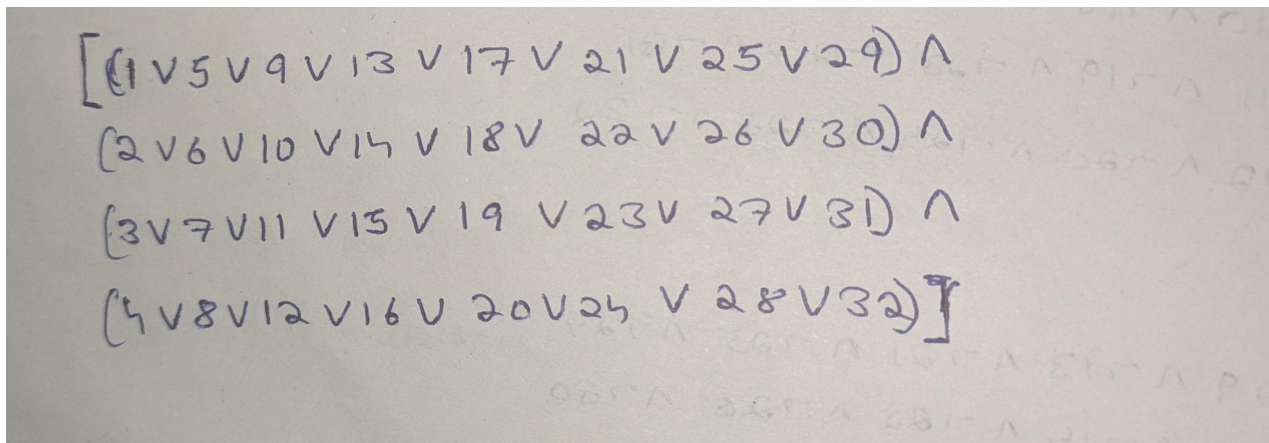 [(1 ∨ 5 ∨ 9 ∨ 13 ∨ 17 ∨ 21 ∨ 25 ∨ 29) ∧
(2 ∨ 6 ∨ 10 ∨ 14 ∨ 18 ∨ 22 ∨ 26 ∨ 30) ∧
(3 ∨ 7 ∨ 11 ∨ 15 ∨ 19 ∨ 23 ∨ 27 ∨ 31) ∧
(4 ∨ 8 ∨ 12 ∨ 16 ∨ 20 ∨ 24 ∨ 28 ∨ 32)]